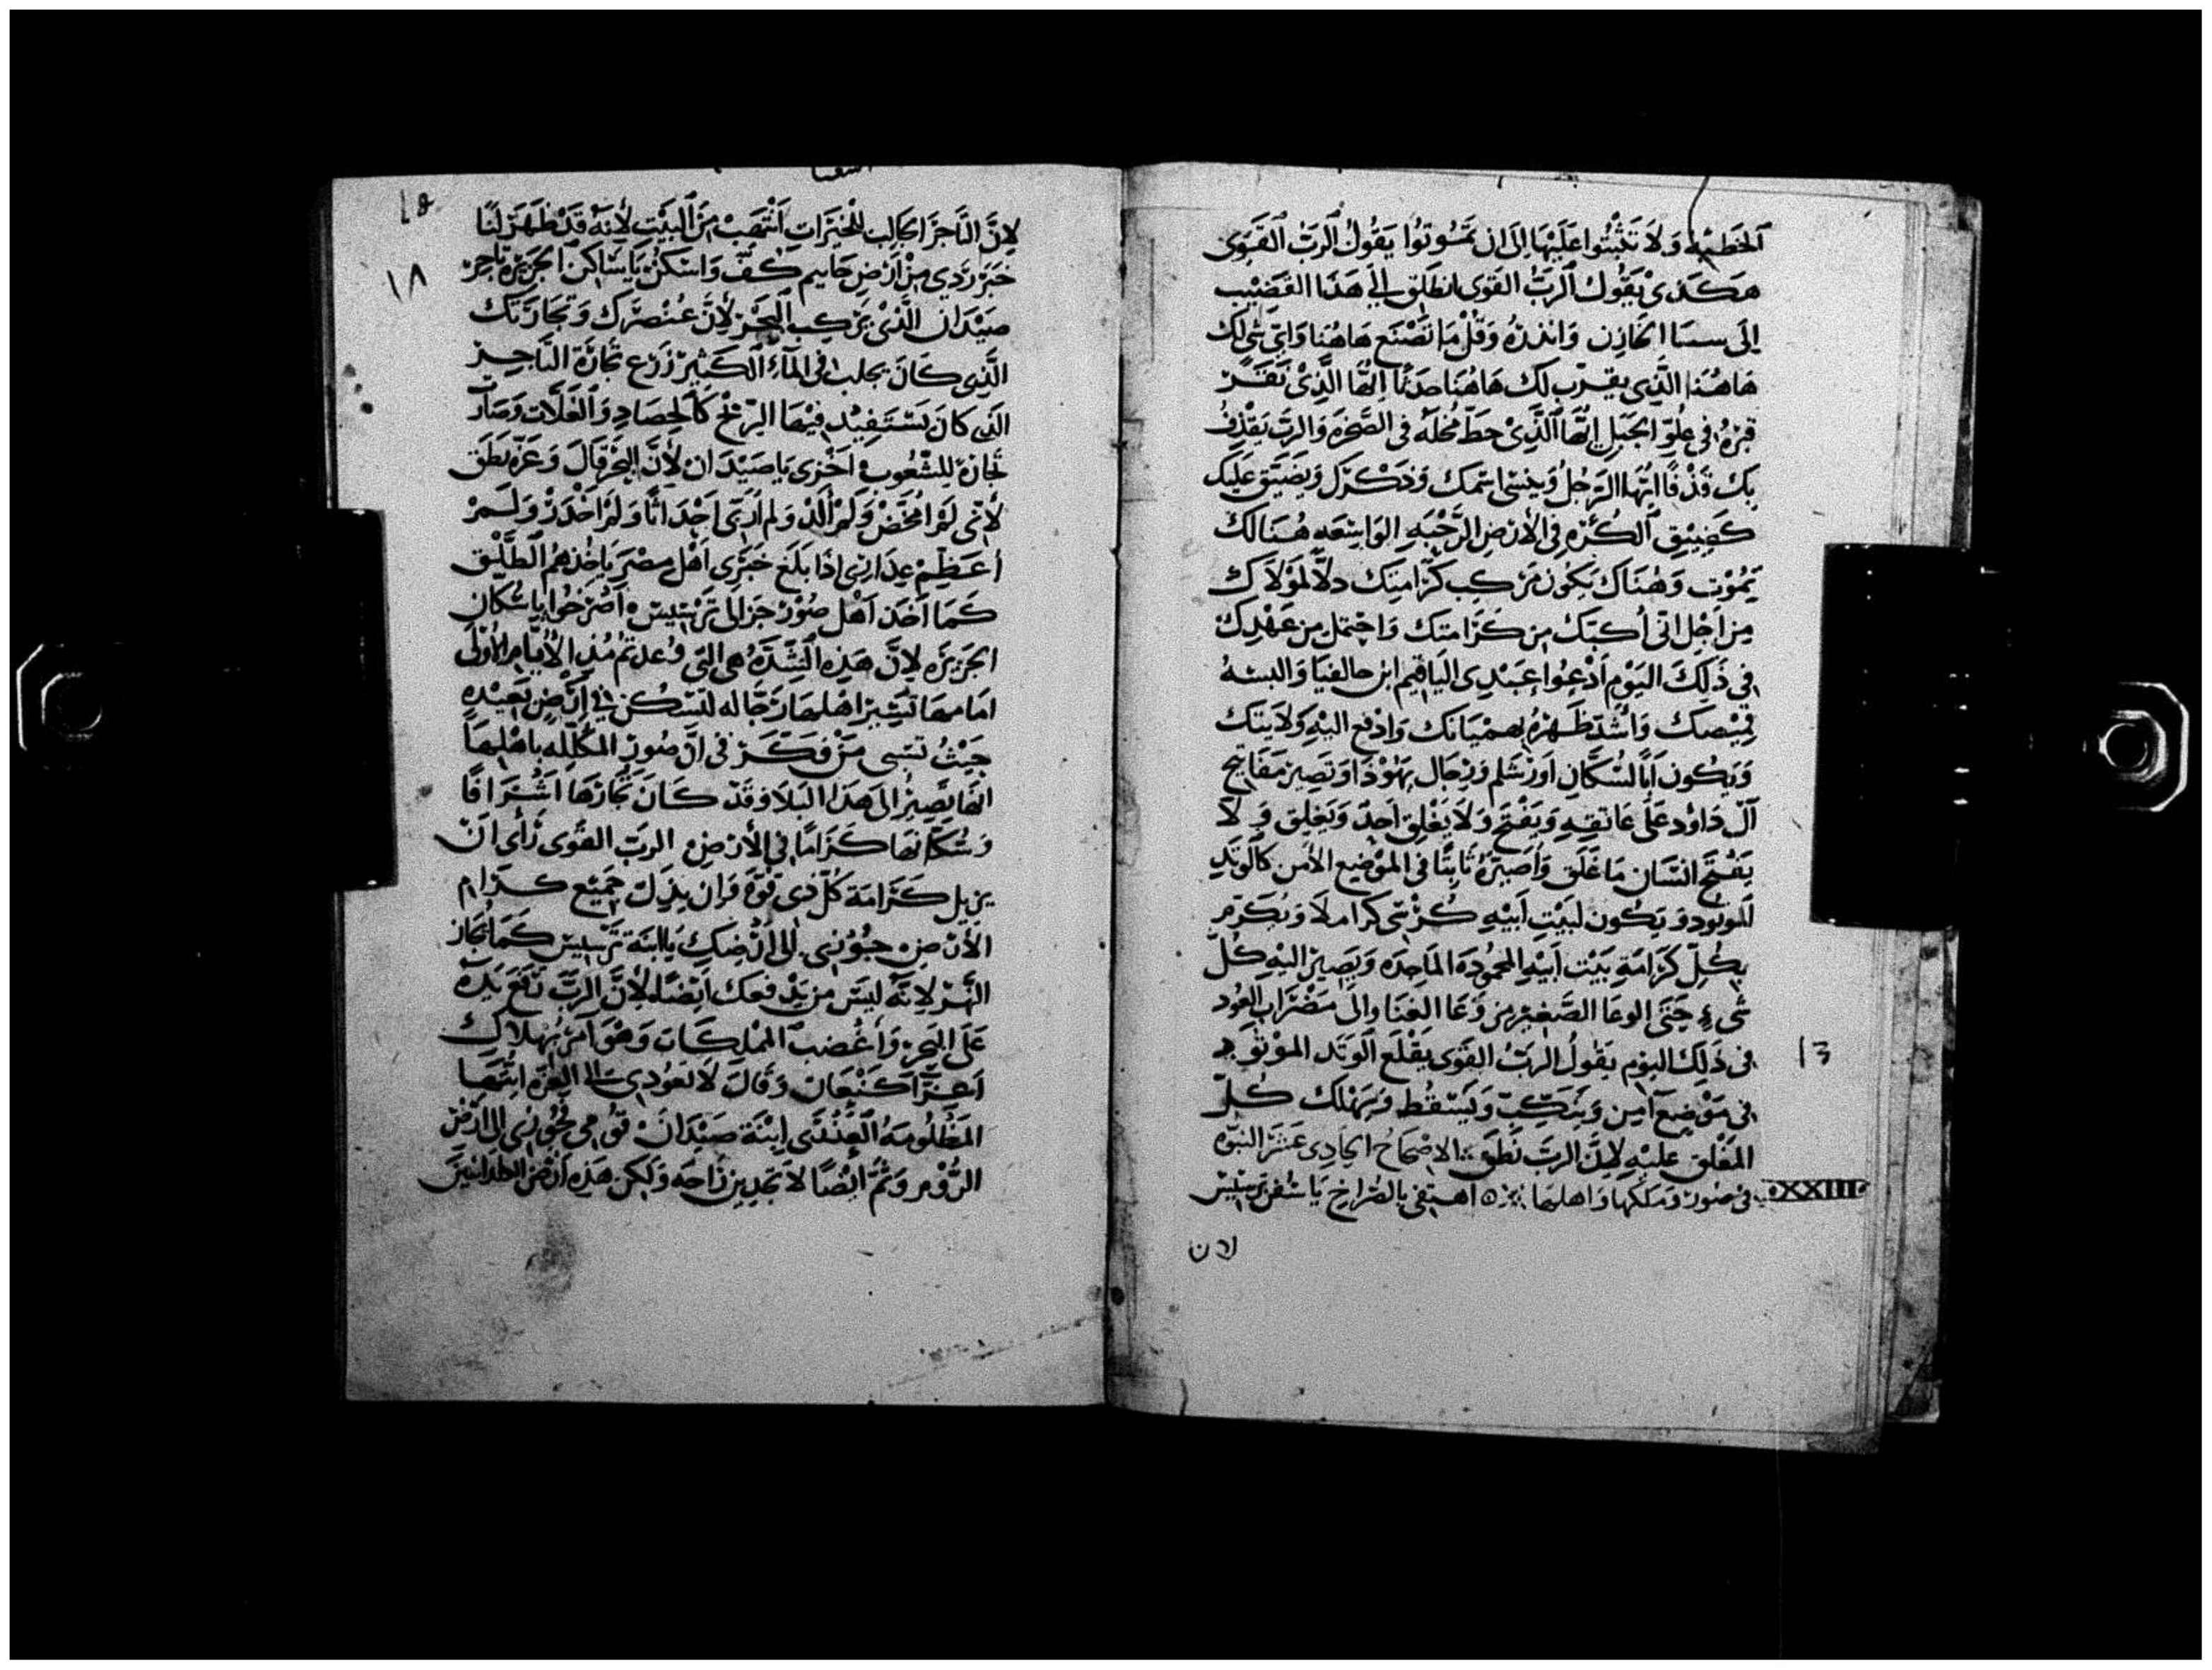 الخطيه وَلَا تَثْبُتُوا عَلَيْهَا اِلَى ان تَمُوتُوا يَقُولُ الرَبُّ القَوِى
هَكَذىْ يَقُولُ الرَبُّ القَوِى انطَلِق الىَ هَذَا القَضِيْب
اِلَى سسنا الخازِن وَانذِرهُ وَقُلْ مَا تَصْنَع هَاهُنَا وَاىّ شىْ لَك
هَاهُنَا الَّذِى يقرّب لك هَاهُنَا ايّهَا الَّذِىْ نَقَرَ
قبرَهُ فى عِلُوِّ الجَبَلِ ايّهَا الَّذِىْ حَطَّ مُحَلّهُ فى الصَّخرَة وَالربّ يَقْذِفُ
بِك قَذْفًا ايُّهَا الرَجُلُ وَينسَى اسْمك وَذِكْرَك وَيضَيّق عَلَيك
كَضِيْقِ الكُرَةِ فى الارضِ الرَّحْبَهِ الوَاسِعَهِ هُنَالك
تَمُوْت وَهُنَاكَ يَكُون مَركب كَرَامَتك دلّا لموْلاك
مِن اَجْلِ انّى اُكبّك مِن كَرَامتك وَاحْتمل مِن عَهْدِك
فى ذَلِكَ اليَوْمِ اَدْعُوا عَبْدِى اليَاقيم ابن حالفيَا وَالبسهُ
قمِيْصَك وَاشُد ظَهْرَهُ بِهمْيَانك وَادْفع اليْهِ وَلَايَتك
وَيكُون اَبًا لسُكَّانِ اورَشلم وَرِجَال يَهُوْذَا وَتصِير مَفَاتِيح
آل دَاوُد عَلَى عَاتقِهِ وَيَفْتَح وَلَا يَغْلِق اَحدٌ وَيَغلِق وَ لَا
يَفْتح انسَان مَا غَلَق وَاُصَيّرهُ ثَابِتًا فى الموْضِع الامن كَالوَتدِ
الموتود وَيكُون لبَيْتِ اَبيْهِ كُرْسى وَيُكَرّم
بِكُلِّ كَرَامَةِ بَيْت اَبيْهِ المحمُودَه المَاجِدَه وَيَصِير اليْهِ كلّ
شىءٍ حَتى الوعَا الصَّغيْر مِن وَعَا الغنَا وَالى مَضْرَاب العُود
فى ذَلِكَ اليَوم يَقُولُ الربُّ القَوِى يقْلَع الوَتَد الموْتود
فى مَوْضِع آمِين وَينكّب وَيَسْقُط وَيَهْلَك كُلّ
المَغْلق عَليْهِ لِانَّ الرَبّ نَطَق الاصْحَاحُ الحَادِى عَشَر النبوّه
فى صُور وَمَلكهَا وَاهلهَا اهتفى بالصُرَاخِ يَا سُفن تَرسيس
XXIII
13
لان
18
لِانَّ التَّاجرَ الجَالِب للخيرَات انتُهِبَ مِنَ البَيْتِ لِانّهُ قَدْ ظَهَرَ لنَا
خَبَر رَدِى مِنْ اَرْضِ حَاييم كُفّ وَاسْكُنْ يَا سَاكِن الجَزِيْرَة تَاجِر
صَيْدَان الَّذِىْ يَرْكِب البَحْر لِانَّ عُنْصرَك وَتجَارَتك
الَّذِى كَانَ يجلب فى المَاءِ الكَثِير زَرْع تجَارَة التَاجِر
الَذِى كانَ يَسْتَفِيْد فِيْهَا الرّبح كَالحِصَادِ وَالغلَّات وَصَارَت
تجَارَة للشُعُوب اَخْزى يَا صَيْدَان لِانَّ البَحْر قَالَ وَعزّه نَطَقَ
لانّى لَمْ امخَض وَلَمْ الدْ وَلم اُربّى اَحْدَاثًا وَلَمْ وَلَمْ
اُعَظِّم عِدَارى اذَا بَلَغ خبَرى اَهْل مِصْر يَاخُذهُم الطَّلْق
كَمَا اَخَذَ اَهْل صُوْر الى تَرْسيس اصْرخُوا يَا سُكّان
الجَزِيرَه لِانَّ هَذِهِ الشِدّه هِى التى وُعدتم مُنذ الايَّامِ الاُوْلَى
امَامهَا تُسَيّر اَهْلهَا رَجّاله لتَسْكن فى اَرْضٍ بَعِيْدهِ
حَيْثُ تسَبى مَنْ فَكّر فى اَنّ صُور المكلّله باهْلِهَا
انّهَا تصِيرُ الى هَذَا البَلَا وَقَدْ كَانَ تُجّارهَا اَشْرَافًا
وَسُكّانهَا كَرَامًا فى الارْضِ الربّ القَوِى رَأى اَنْ
يزيل كَرَامَة كُلّ ذِى قُوّة وَان يذِلّ جَمِيع كرام
الارْضِ جُوْزى الى اَرْضِكِ يَا ابنَة تَرْسيس كَمَا يُجَاز
النّهر لِانّهُ ليْسَ مَن يَدْفعك اَيْضًا لِانّ الربّ رَفَع يَدهُ
عَلَى البَحر وَاَغْضب المَمْلكَات وَهُوَ اَمَرَ بهلاك
اَعزّا كَنْعَان وَقَالَ لَا تعُودى الى العزّه ايَّتهَا
المَظْلُومَهُ العَذْرَى اِبْنَة صَيْدَان قُوْمى نحوزى الى ارضْ
الرُّوْم وَثمّ ايْضًا لَا تجدِيْن رَاحَه وَلكن هَذِهِ ارْض الكلدانيّين